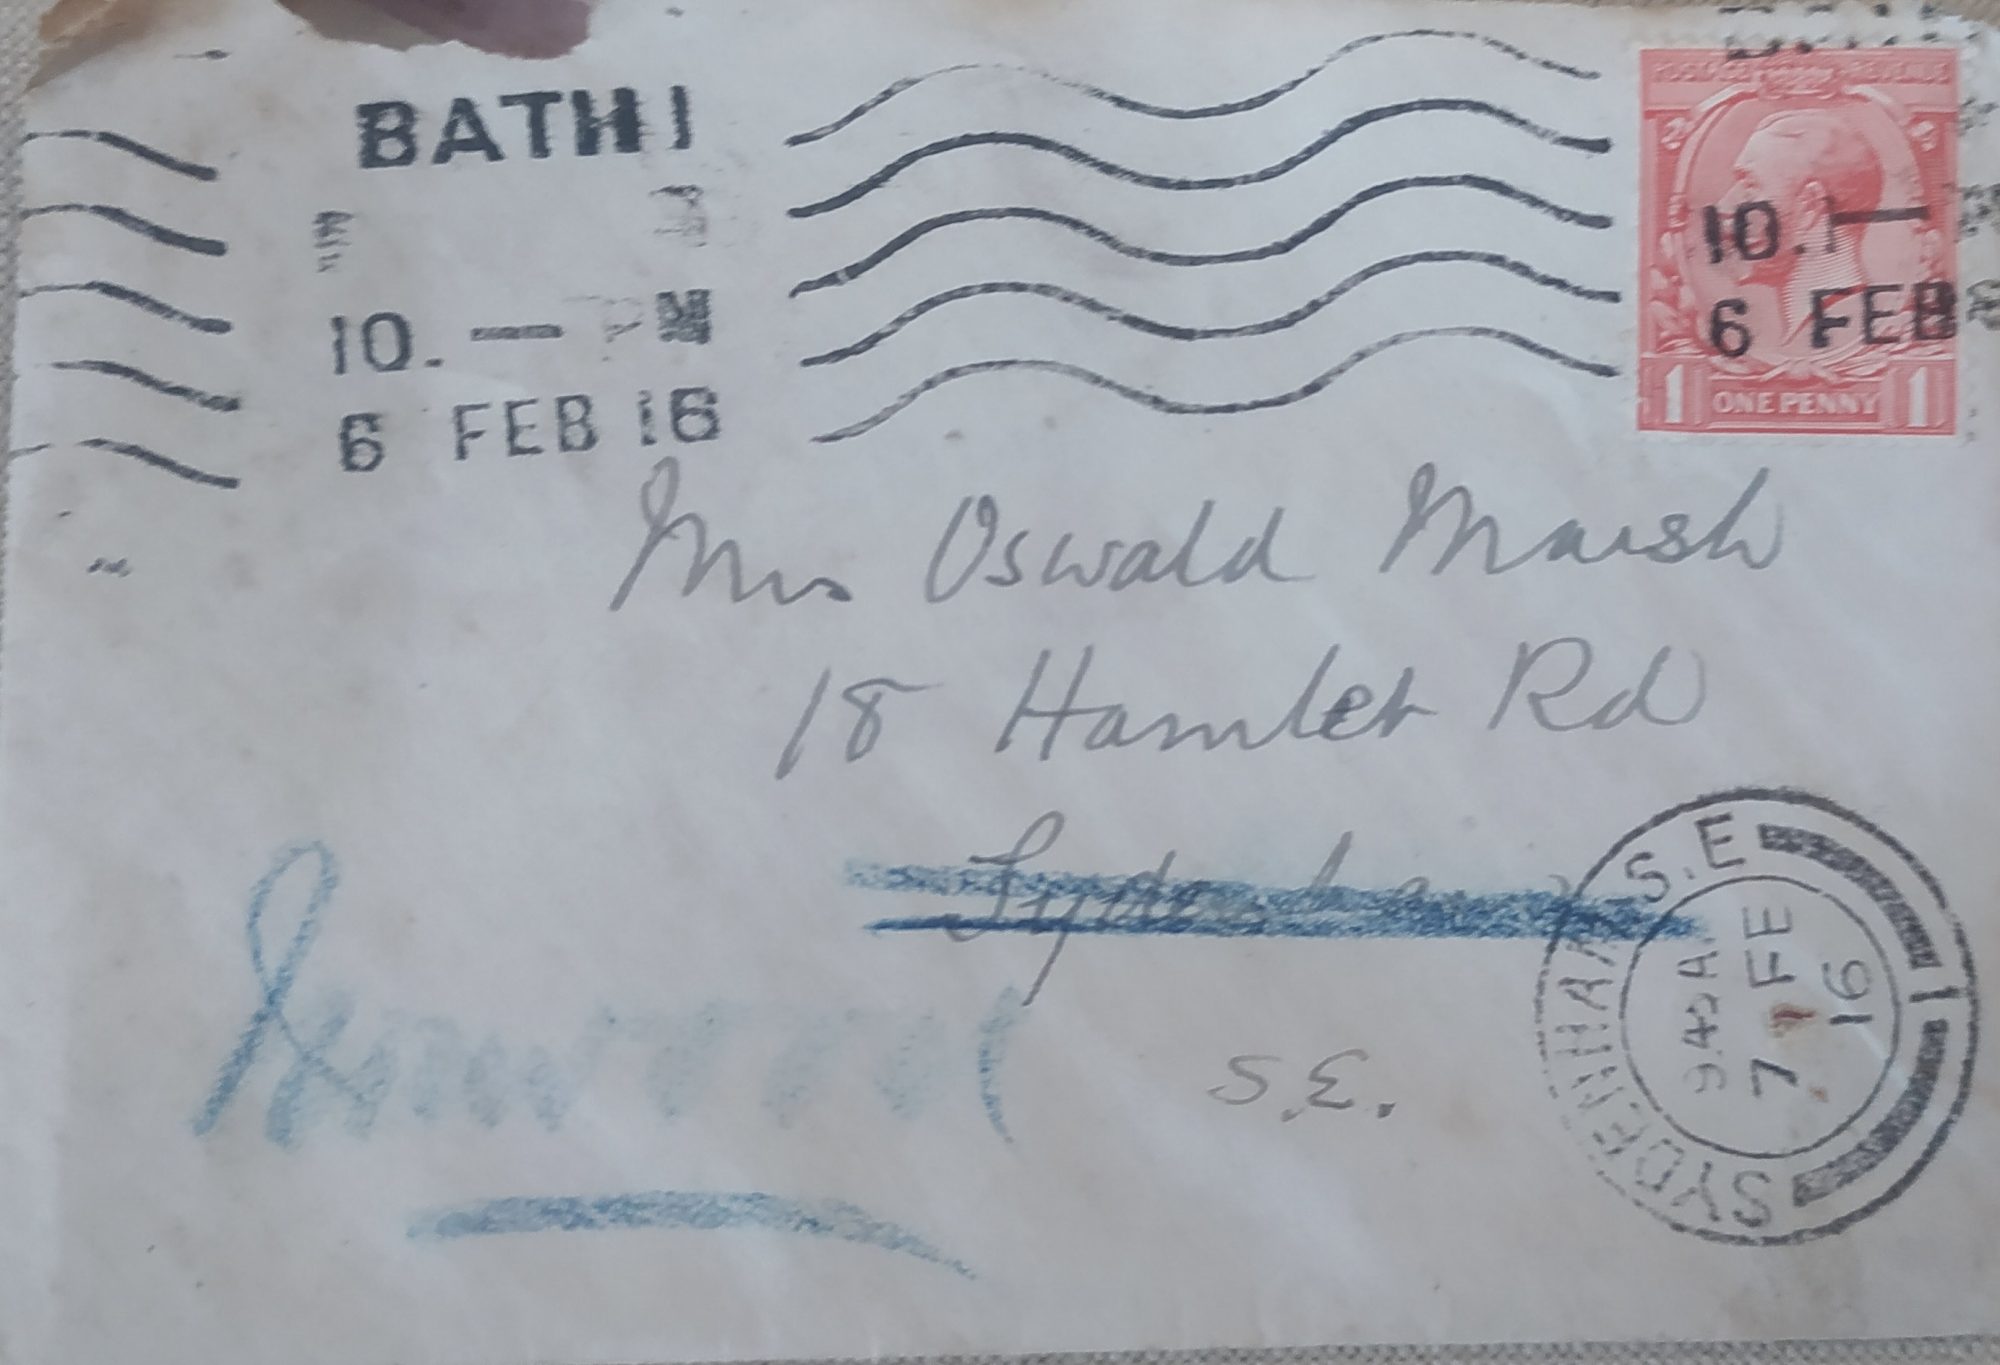 BATH 1
10. —
6 FEB 16
POSTAGE REVENUE
10. —
6 FEB
1 ONE PENNY 1
Mrs Oswald Marsh
18 Hamlet Rd
Sydenham
S.E.
SYDENHAM S.E 1
9.45 A
7 FE
16